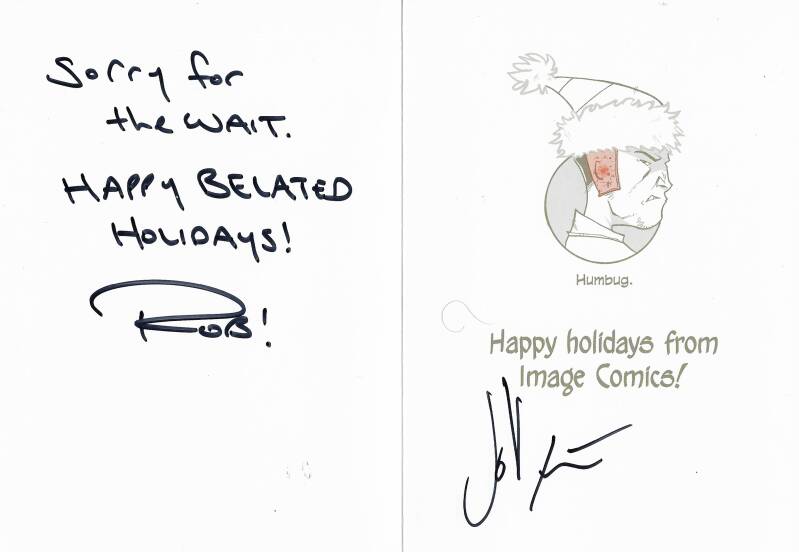 Sorry for
the WAIT.
HAPPY BELATED
HOLIDAYS!
ROB!
Humbug.
Happy holidays from
Image Comics!